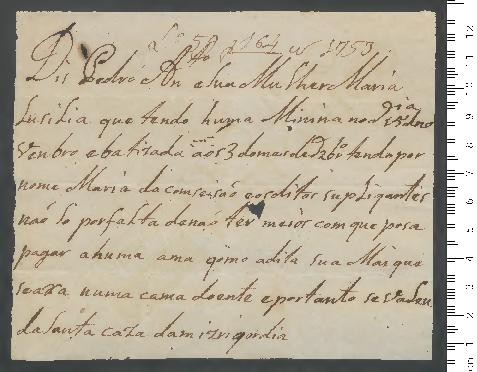 Lº 59 f 164 v 1753
Dis Pedro An e Sua Mulher Maria
Lusilia que tendo huma Minina no dia 15 de no
venbro e batizada aos 3 do mas de Dzbrº tendo por
nome Maria da comseisão e os ditos supligantes
não so por falta de não ter meios com que posa
pagar a huma ama como a dita sua Mai que
se axa numa cama doente e portanto se valeu
da Santa caza da mizrigordia